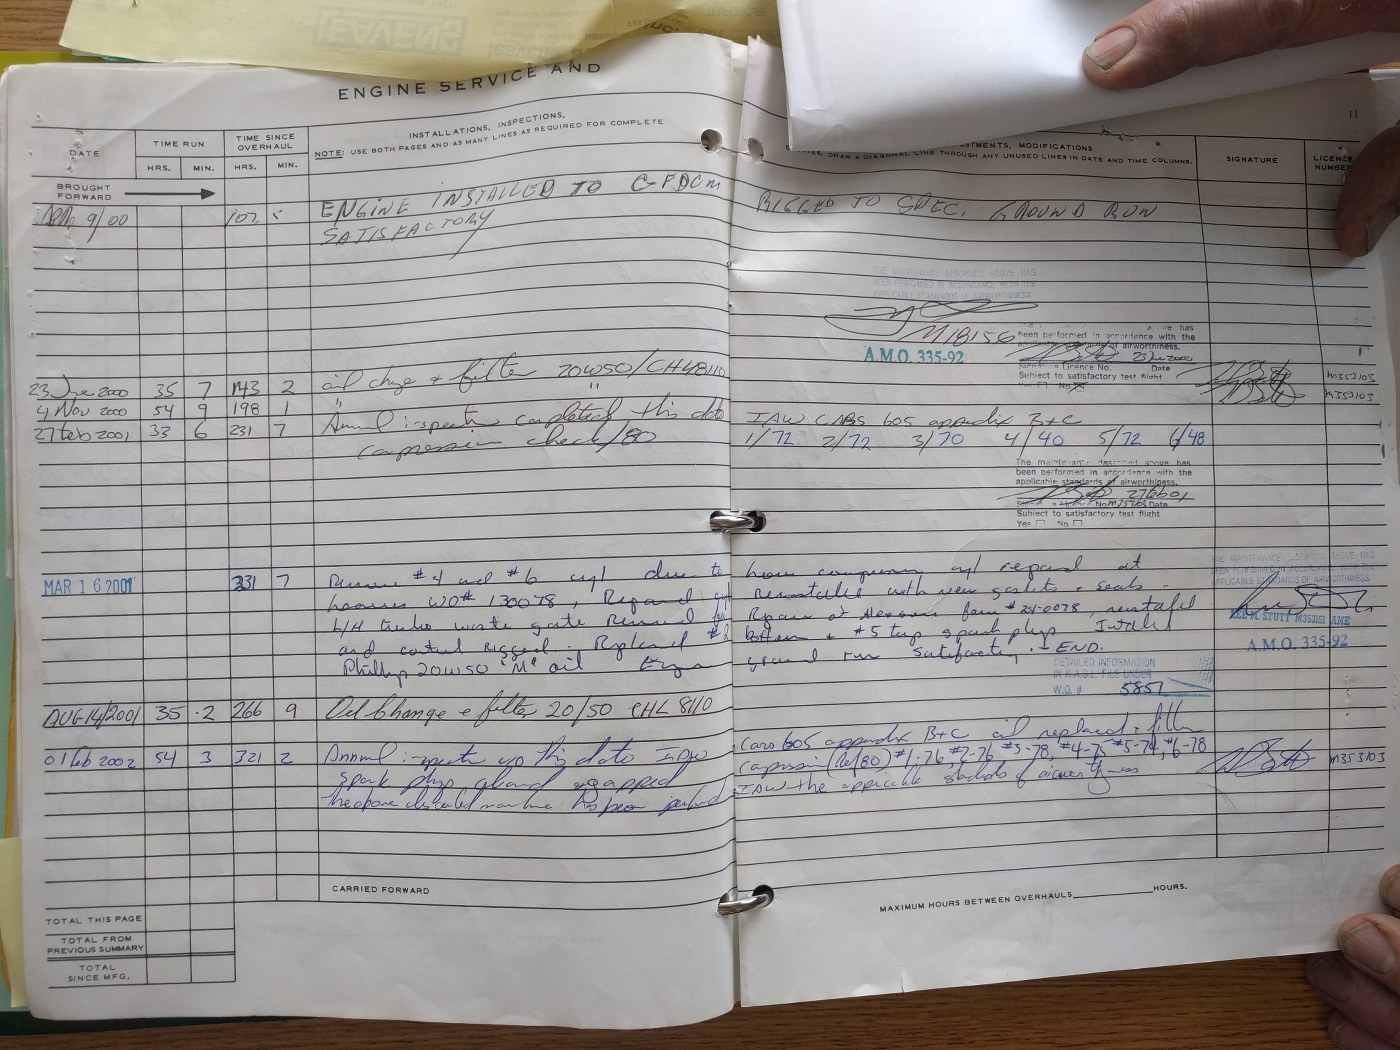 LEAVENS
ENGINE SERVICE AND
11
DATE
TIME RUN
HRS. MIN.
TIME SINCE OVERHAUL
HRS. MIN.
INSTALLATIONS, INSPECTIONS,
NOTE: USE BOTH PAGES AND AS MANY LINES AS REQUIRED FOR COMPLETE
STMENTS, MODIFICATIONS
DRAW A DIAGONAL LINE THROUGH ANY UNUSED LINES IN DATE AND TIME COLUMNS.
SIGNATURE
LICENCE NUMBER
BROUGHT FORWARD
9/00 107 5 ENGINE INSTALLED TO C-FDCM RIGGED TO SPEC. GROUND RUN
SATISFACTORY
THE MAINTENANCE DESCRIBED ABOVE HAS
BEEN PERFORMED IN ACCORDANCE WITH THE
APPLICABLE STANDARDS OF AIRWORTHINESS
M18156
A.M.O. 335-92
has
been performed in accordance with the
of airworthiness.
23 Jne 2000
Licence No. Date
Subject to satisfactory test flight
No
23 Jne 2000 35 7 143 2 oil chge + filter 20W50/CH48110 M353103
4 Nov 2000 54 9 198 1 " " M353103
27 Feb 2001 33 6 231 7 Annual inspection completed this date IAW CARS 605 appendix B+C
compression check/80 1/72 2/72 3/70 4/40 5/72 6/48
The maintenance described above has
been performed in accordance with the
applicable standards of airworthiness.
27 Feb 01
Date
Subject to satisfactory test flight
Yes No
MAR 16 2001 331 7 Remove #4 and #6 cyl due to low compression cyl repaired at
WO# 130078, Repaired cyl reinstalled with new gaskets + seals.
L/H turbo waste gate Removed for Repair at form # 24-0078, reinstalled
and control rigged. Replaced bottom + #5 top spark plugs Installed
Phillip 20W50 "M" oil ground run satisfactory. - END.
THE MAINTENANCE DESCRIBED ABOVE HAS
BEEN PERFORMED IN ACCORDANCE WITH THE
APPLICABLE STANDARDS OF AIRWORTHINESS
STUTT M353151 AME
A.M.O. 335-92
DETAILED INFORMATION
IN K.A.S.L. FILE UNDER
W.O. # 5857
AUG 14/2001 35 .2 266 9 Oil Change + filter 20/50 CHL 8110
01 Feb 2002 54 3 321 2 Annual inspection this date IAW Cars 605 appendix B+C oil replaced + filter
spark plugs cleaned + gapped compression (Ref 80) #1-76, #2-76 #3-78, #4-75 #5-74, #6-78 M353103
the above described maintenance has been performed IAW the applicable standards of airworthyness
CARRIED FORWARD
MAXIMUM HOURS BETWEEN OVERHAULS HOURS.
TOTAL THIS PAGE
TOTAL FROM
PREVIOUS SUMMARY
TOTAL
SINCE MFG.